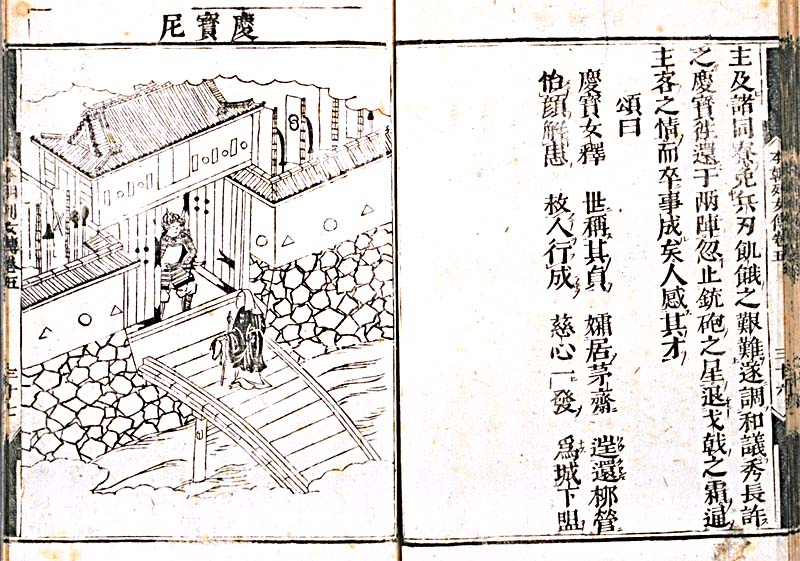 主及諸同寮免兵刃飢餓之艱難遂調和議秀長許
之慶寶往還于両陣忽止銃砲之星退戈戟之霜逼
主客之情而卒事成矣人感其才
頌曰
慶寶女釋 世稱其貞 孀居茅齋 還柳營
怡顔解患 救人行成 慈心一發 爲城下盟
本朝列女傳卷五 三十六
慶寶尼
本朝列女傳卷五 三十七